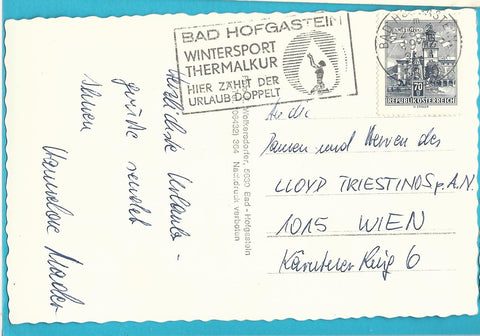 BAD HOFGASTEIN
WINTERSPORT
THERMALKUR
HIER ZÄHLT DER
URLAUB DOPPELT
BAD HOFGAST
70
REPUBLIK ÖSTERREICH
Herzlichste Urlaubs-
grüße sendet
Ihnen
Hannelore
An die
Damen und Herren des
LLOYD TRIESTINO S.p.A.N.
1015 WIEN
Kärntner Ring 6
Wolkersdorfer, 5630 Bad-Hofgastein
(06432) 384 Nachdruck verboten